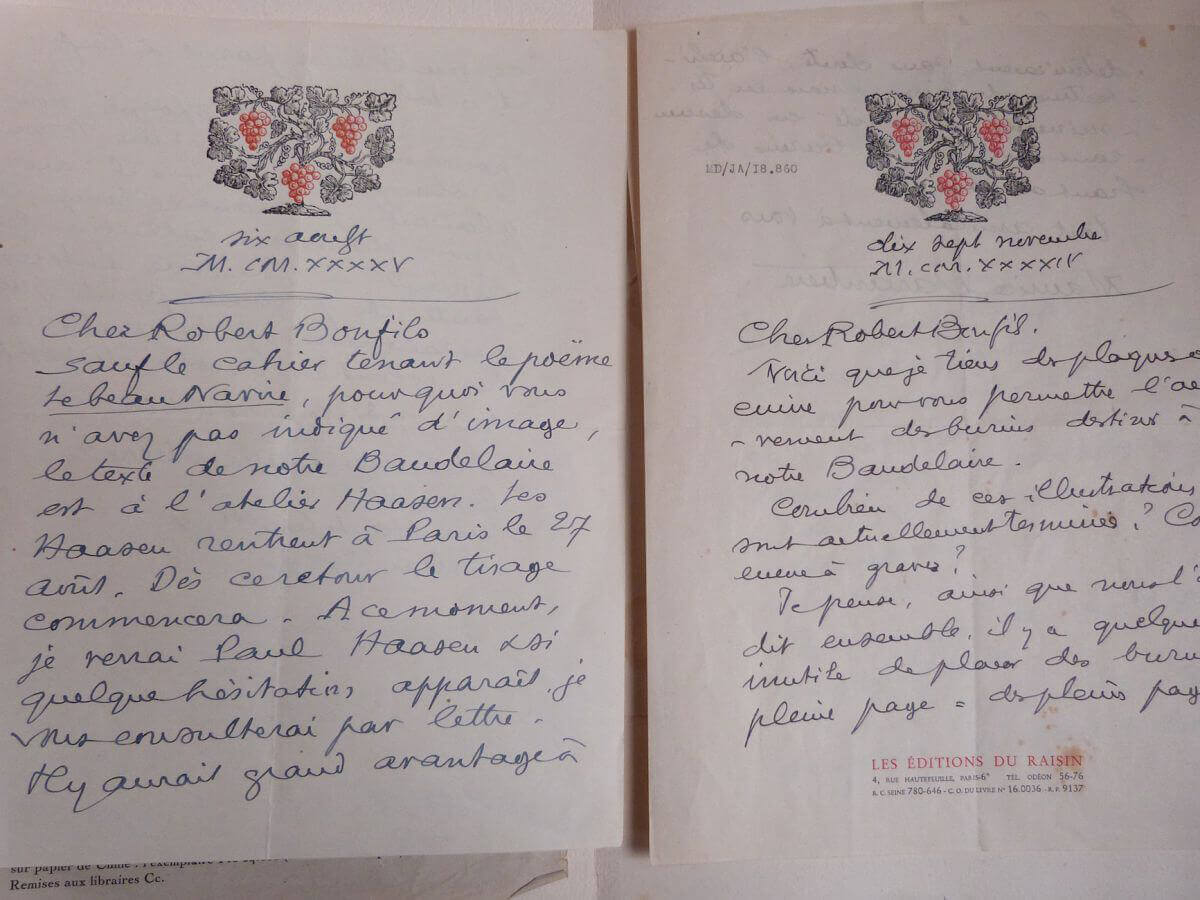 six aoust
M. CM. XXXXV
Cher Robert Bonfils
sauf le cahier tenant le poëme
Le beau Navire, pourquoi vous
n'avez pas indiqué d'image,
le texte de notre Baudelaire
est à l'atelier Haasen. Les
Haasen rentrent à Paris le 27
août. Dès ce retour le tirage
commencera. A ce moment,
je verrai Paul Haasen & si
quelque hésitation apparaît, je
vous consulterai par lettre.
Il y aurait grand avantage à
sur papier de Chine : l'exemplaire
Remises aux libraires Cc.
MD/JA/18.860
dix sept novembre
M. CM. XXXXIV
Cher Robert Bonfils.
Voici que je tiens des plaques
cuivre pour vous permettre l'ac
-vement des burins destinés à
notre Baudelaire.
Combien de ces illustrations
sont actuellement terminées ? Co
encore à graver ?
Je pense, ainsi que nous l'a
dit ensemble, il y a quelque
inutile de placer des burins
pleine page = des pleins pag
LES ÉDITIONS DU RAISIN
4, RUE HAUTEFEUILLE, PARIS-6e TÉL. ODÉON 56-76
R. C. SEINE 780-646 - C. O. DU LIVRE N° 16.0036 - R. P. 9137